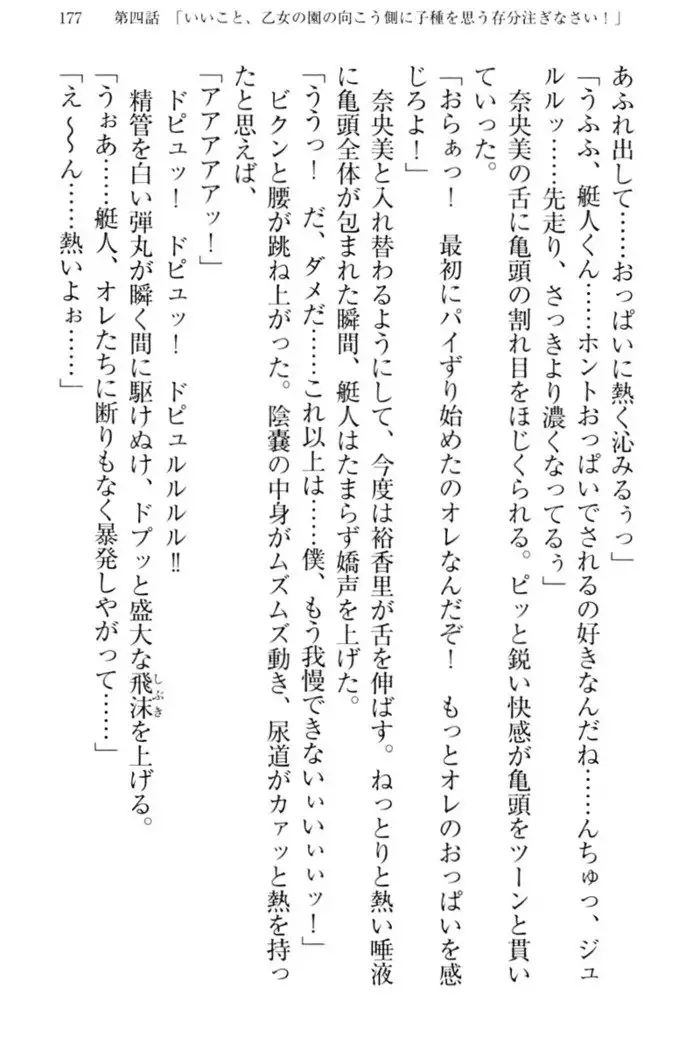 177 第四話 「いいこと、乙女の園の向こう側に子種を思う存分注ぎなさい！」
あふれ出して……おっぱいに熱く沁みるぅっ」
「うふふ、艇人くん……ホントおっぱいでされるの好きなんだね……んちゅっ、ジュ
ルルッ……先走り、さっきより濃くなってるぅ」
奈央美の舌に亀頭の割れ目をほじくられる。ピッと鋭い快感が亀頭をツーンと貫い
ていった。
「おらぁっ！　最初にパイずり始めたのオレなんだぞ！　もっとオレのおっぱいを感
じろよ！」
奈央美と入れ替わるようにして、今度は裕香里が舌を伸ばす。ねっとりと熱い唾液
に亀頭全体が包まれた瞬間、艇人はたまらず嬌声を上げた。
「ううっ！　だ、ダメだ……これ以上は……僕、もう我慢できないぃぃぃぃッ！」
ビクンと腰が跳ね上がった。陰嚢の中身がムズムズ動き、尿道がカァッと熱を持っ
たと思えば、
「アアアアアッ！」
ドピュッ！　ドピュッ！　ドピュルルルル‼
精管を白い弾丸が瞬く間に駆けぬけ、ドプッと盛大な飛沫しぶきを上げる。
「うぉあ……艇人、オレたちに断りもなく暴発しやがって……」
「え～～ん……熱いよぉ……」